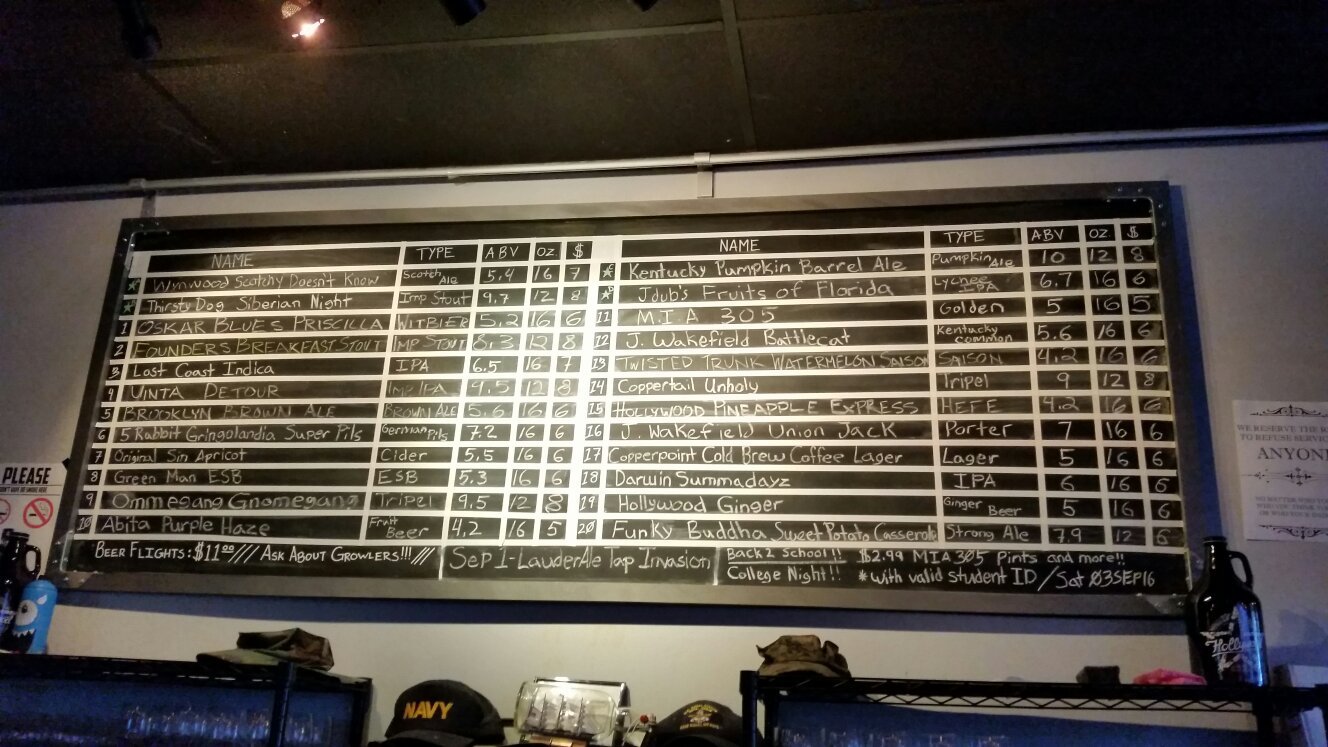 NAME TYPE ABV OZ. $
* Wynwood Scotchy Doesn't Know Scotch Ale 5.4 16 7
* Thirsty Dog Siberian Night Imp Stout 9.7 12 8
1 OSKAR BLUES PRISCILLA WITBIER 5.2 16 6
2 FOUNDERS BREAKFAST STOUT IMP STOUT 8.3 12 8
3 Lost Coast Indica IPA 6.5 16 7
4 UINTA DETOUR Imp IPA 9.5 12 8
5 BROOKLYN BROWN ALE BROWN ALE 5.6 16 6
6 5 Rabbit Gringolandia Super Pils German Pils 7.2 16 6
7 Original Sin Apricot Cider 5.5 16 6
8 Green Man ESB ESB 5.3 16 6
9 Ommegang Gnomegang Tripel 9.5 12 8
10 Abita Purple Haze Fruit Beer 4.2 16 5
NAME TYPE ABV OZ. $
* Kentucky Pumpkin Barrel Ale Pumpkin Ale 10 12 8
* Jdub's Fruits of Florida Lychee IPA 6.7 16 6
11 M.I.A 305 Golden 5 16 5
12 J. Wakefield Battlecat Kentucky common 5.6 16 6
13 TWISTED TRUNK WATERMELON SAISON SAISON 4.2 16 6
14 Coppertail Unholy Tripel 9 12 8
15 HOLLYWOOD PINEAPPLE EXPRESS HEFE 4.2 16 6
16 J. Wakefield Union Jack Porter 7 16 6
17 Copperpoint Cold Brew Coffee Lager Lager 5 16 6
18 Darwin Summadayz IPA 6 16 6
19 Hollywood Ginger Ginger Beer 5 16 6
20 Funky Buddha Sweet Potato Casserole Strong Ale 7.9 12 6
BEER FLIGHTS: $11.00 /// ASK ABOUT GROWLERS!!! ///
SeP 1-LauderAle Tap Invasion
Back 2 School!! $2.99 MIA 305 Pints and more!!
College Night!! *with valid student ID / Sat 03SEP16
PLEASE
WE RESERVE THE R
TO REFUSE SERVIC
ANYON
NAVY
Holly